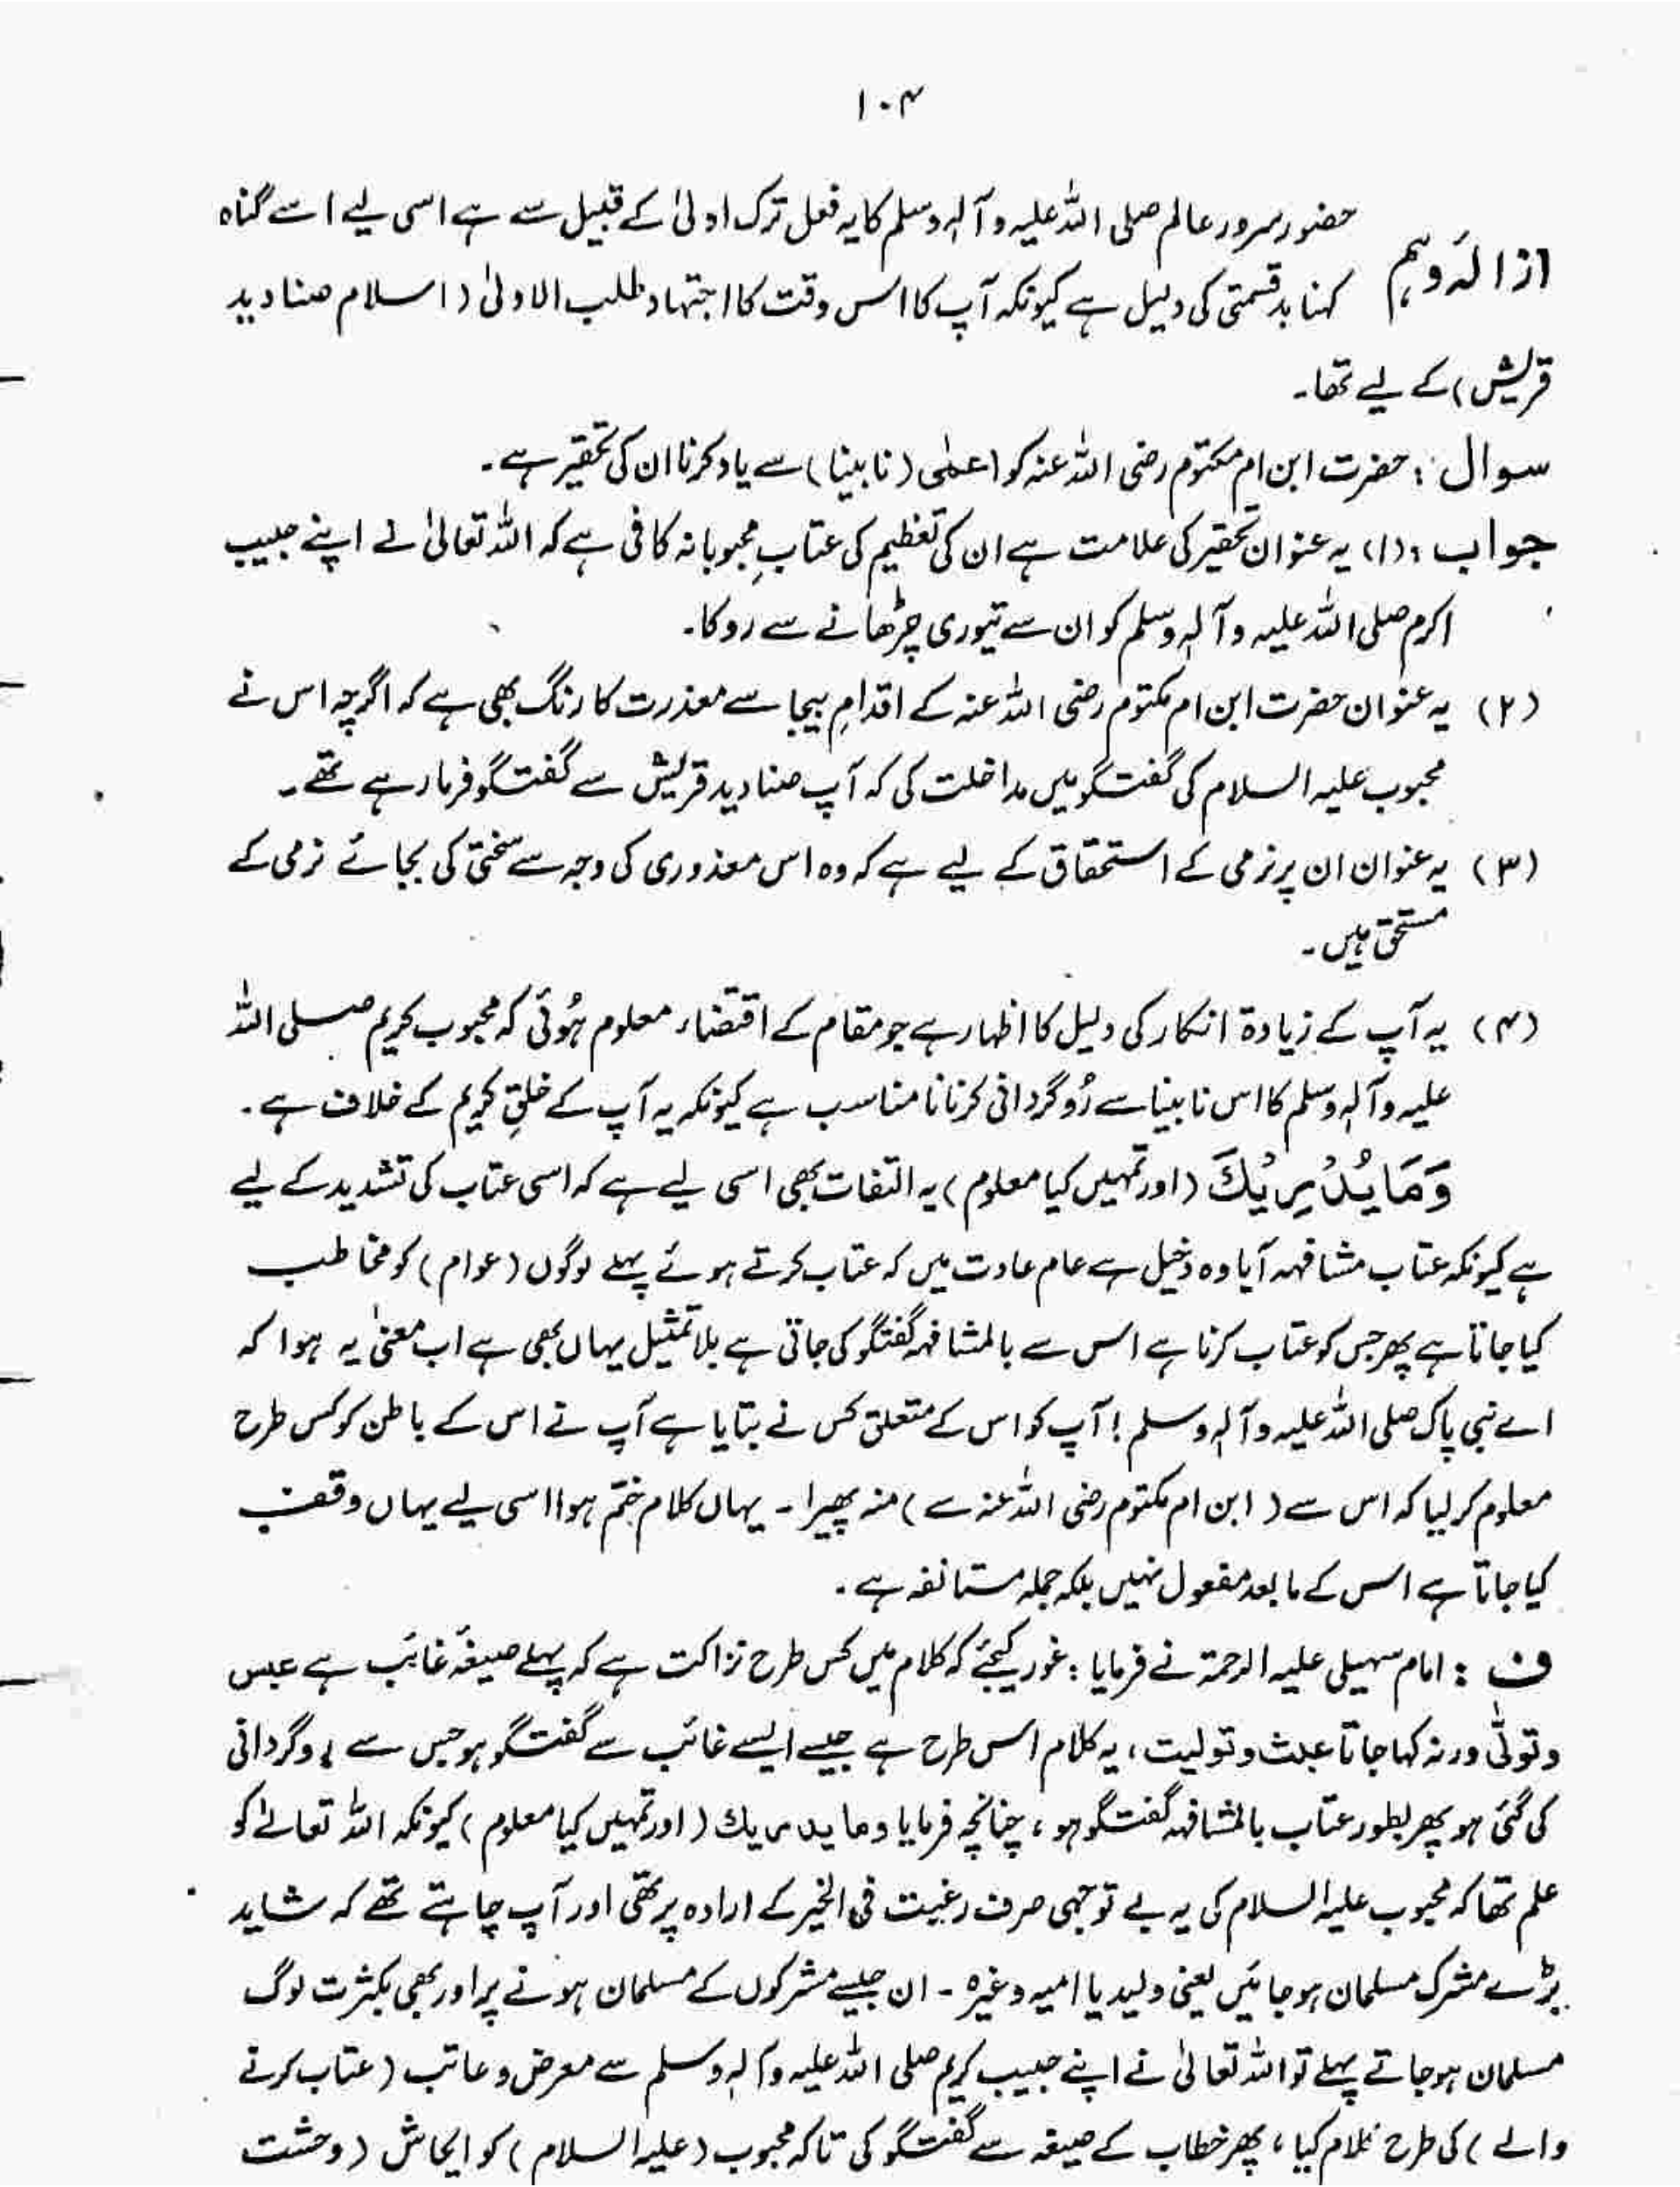 ۱۰۴
حضور سرور عالم صلی اللہ علیہ وآلہ وسلم کا یہ فعل ترک اولیٰ کے قبیل سے ہے اسی لیے اسے گناہ
ازالۂ وہم
کہنا بدقسمتی کی دلیل ہے کیونکہ آپ کا اس وقت کا اجتہاد طلب الاولیٰ (اسلام صنادید
قریش) کے لیے تھا۔
سوال : حضرت ابن ام مکتوم رضی اللہ عنہ کو اعمٰی (نابینا) سے یاد کرنا ان کی تحقیر ہے۔
جواب : (۱) یہ عنوان تحقیر کی علامت ہے ان کی تعظیم کی عتابِ محبوبانہ کافی ہے کہ اللہ تعالیٰ نے اپنے حبیب
اکرم صلی اللہ علیہ وآلہ وسلم کو ان سے تیوری چڑھانے سے روکا۔
(۲) یہ عنوان حضرت ابن ام مکتوم رضی اللہ عنہ کے اقدامِ بیجا سے معذرت کا رنگ بھی ہے کہ اگرچہ اس نے
محبوب علیہ السلام کی گفتگو میں مداخلت کی کہ آپ صنادید قریش سے گفتگو فرما رہے تھے۔
(۳) یہ عنوان ان پر نرمی کے استحقاق کے لیے ہے کہ وہ اس معذوری کی وجہ سے سختی کی بجائے نرمی کے
مستحق ہیں۔
(۴) یہ آپ کے زیادۃ انکار کی دلیل کا اظہار ہے جو مقام کے اقتضاء معلوم ہوئی کہ محبوب کریم صلی اللہ
علیہ وآلہ وسلم کا اس نابینا سے رُوگردانی کرنا نامناسب ہے کیونکہ یہ آپ کے خلقِ کریم کے خلاف ہے۔
وَمَا يُدْرِيْكَ (اور تمہیں کیا معلوم) یہ التفات بھی اسی لیے ہے کہ اسی عتاب کی تشدید کے لیے
ہے کیونکہ عتاب مشافہہ آیا وہ دخیل ہے عام عادت میں کہ عتاب کرتے ہوئے پہلے لوگوں (عوام) کو مخاطب
کیا جاتا ہے پھر جس کو عتاب کرنا ہے اس سے بالمشافہہ گفتگو کی جاتی ہے بلا تمثیل یہاں بھی ہے اب معنیٰ یہ ہوا کہ
اے نبی پاک صلی اللہ علیہ وآلہ وسلم! آپ کو اس کے متعلق کس نے بتایا ہے آپ نے اس کے باطن کو کس طرح
معلوم کر لیا کہ اس سے (ابن ام مکتوم رضی اللہ عنہ سے) منہ پھیرا۔ یہاں کلام ختم ہوا اسی لیے یہاں وقف
کیا جاتا ہے اس کے مابعد مفعول نہیں بلکہ جملہ مستانفہ ہے۔
ف : امام سہیلی علیہ الرحمۃ نے فرمایا : غور کیجئے کہ کلام میں کس طرح نزاکت ہے کہ پہلے صیغۂ غائب ہے عبس
وتولّٰی ورنہ کہا جاتا عبست وتولیت، یہ کلام اس طرح ہے جیسے ایسے غائب سے گفتگو ہو جس سے روگردانی
کی گئی ہو پھر بطور عتاب بالمشافہہ گفتگو ہو، چنانچہ فرمایا وما یدریك (اور تمہیں کیا معلوم) کیونکہ اللہ تعالےٰ کو
علم تھا کہ محبوب علیہ السلام کی یہ بے توجہی صرف رغبت فی الخیر کے ارادہ پر تھی اور آپ چاہتے تھے کہ شاید
بڑے مشرک مسلمان ہو جائیں یعنی ولید یا امیہ وغیرہ۔ ان جیسے مشرکوں کے مسلمان ہونے پر اور بھی بکثرت لوگ
مسلمان ہو جاتے پہلے تو اللہ تعالیٰ نے اپنے حبیب کریم صلی اللہ علیہ وآلہ وسلم سے معرض وعاتب (عتاب کرنے
والے) کی طرح کلام کیا، پھر خطاب کے صیغہ سے گفتگو کی تاکہ محبوب (علیہ السلام) کو ایحاش (وحشت